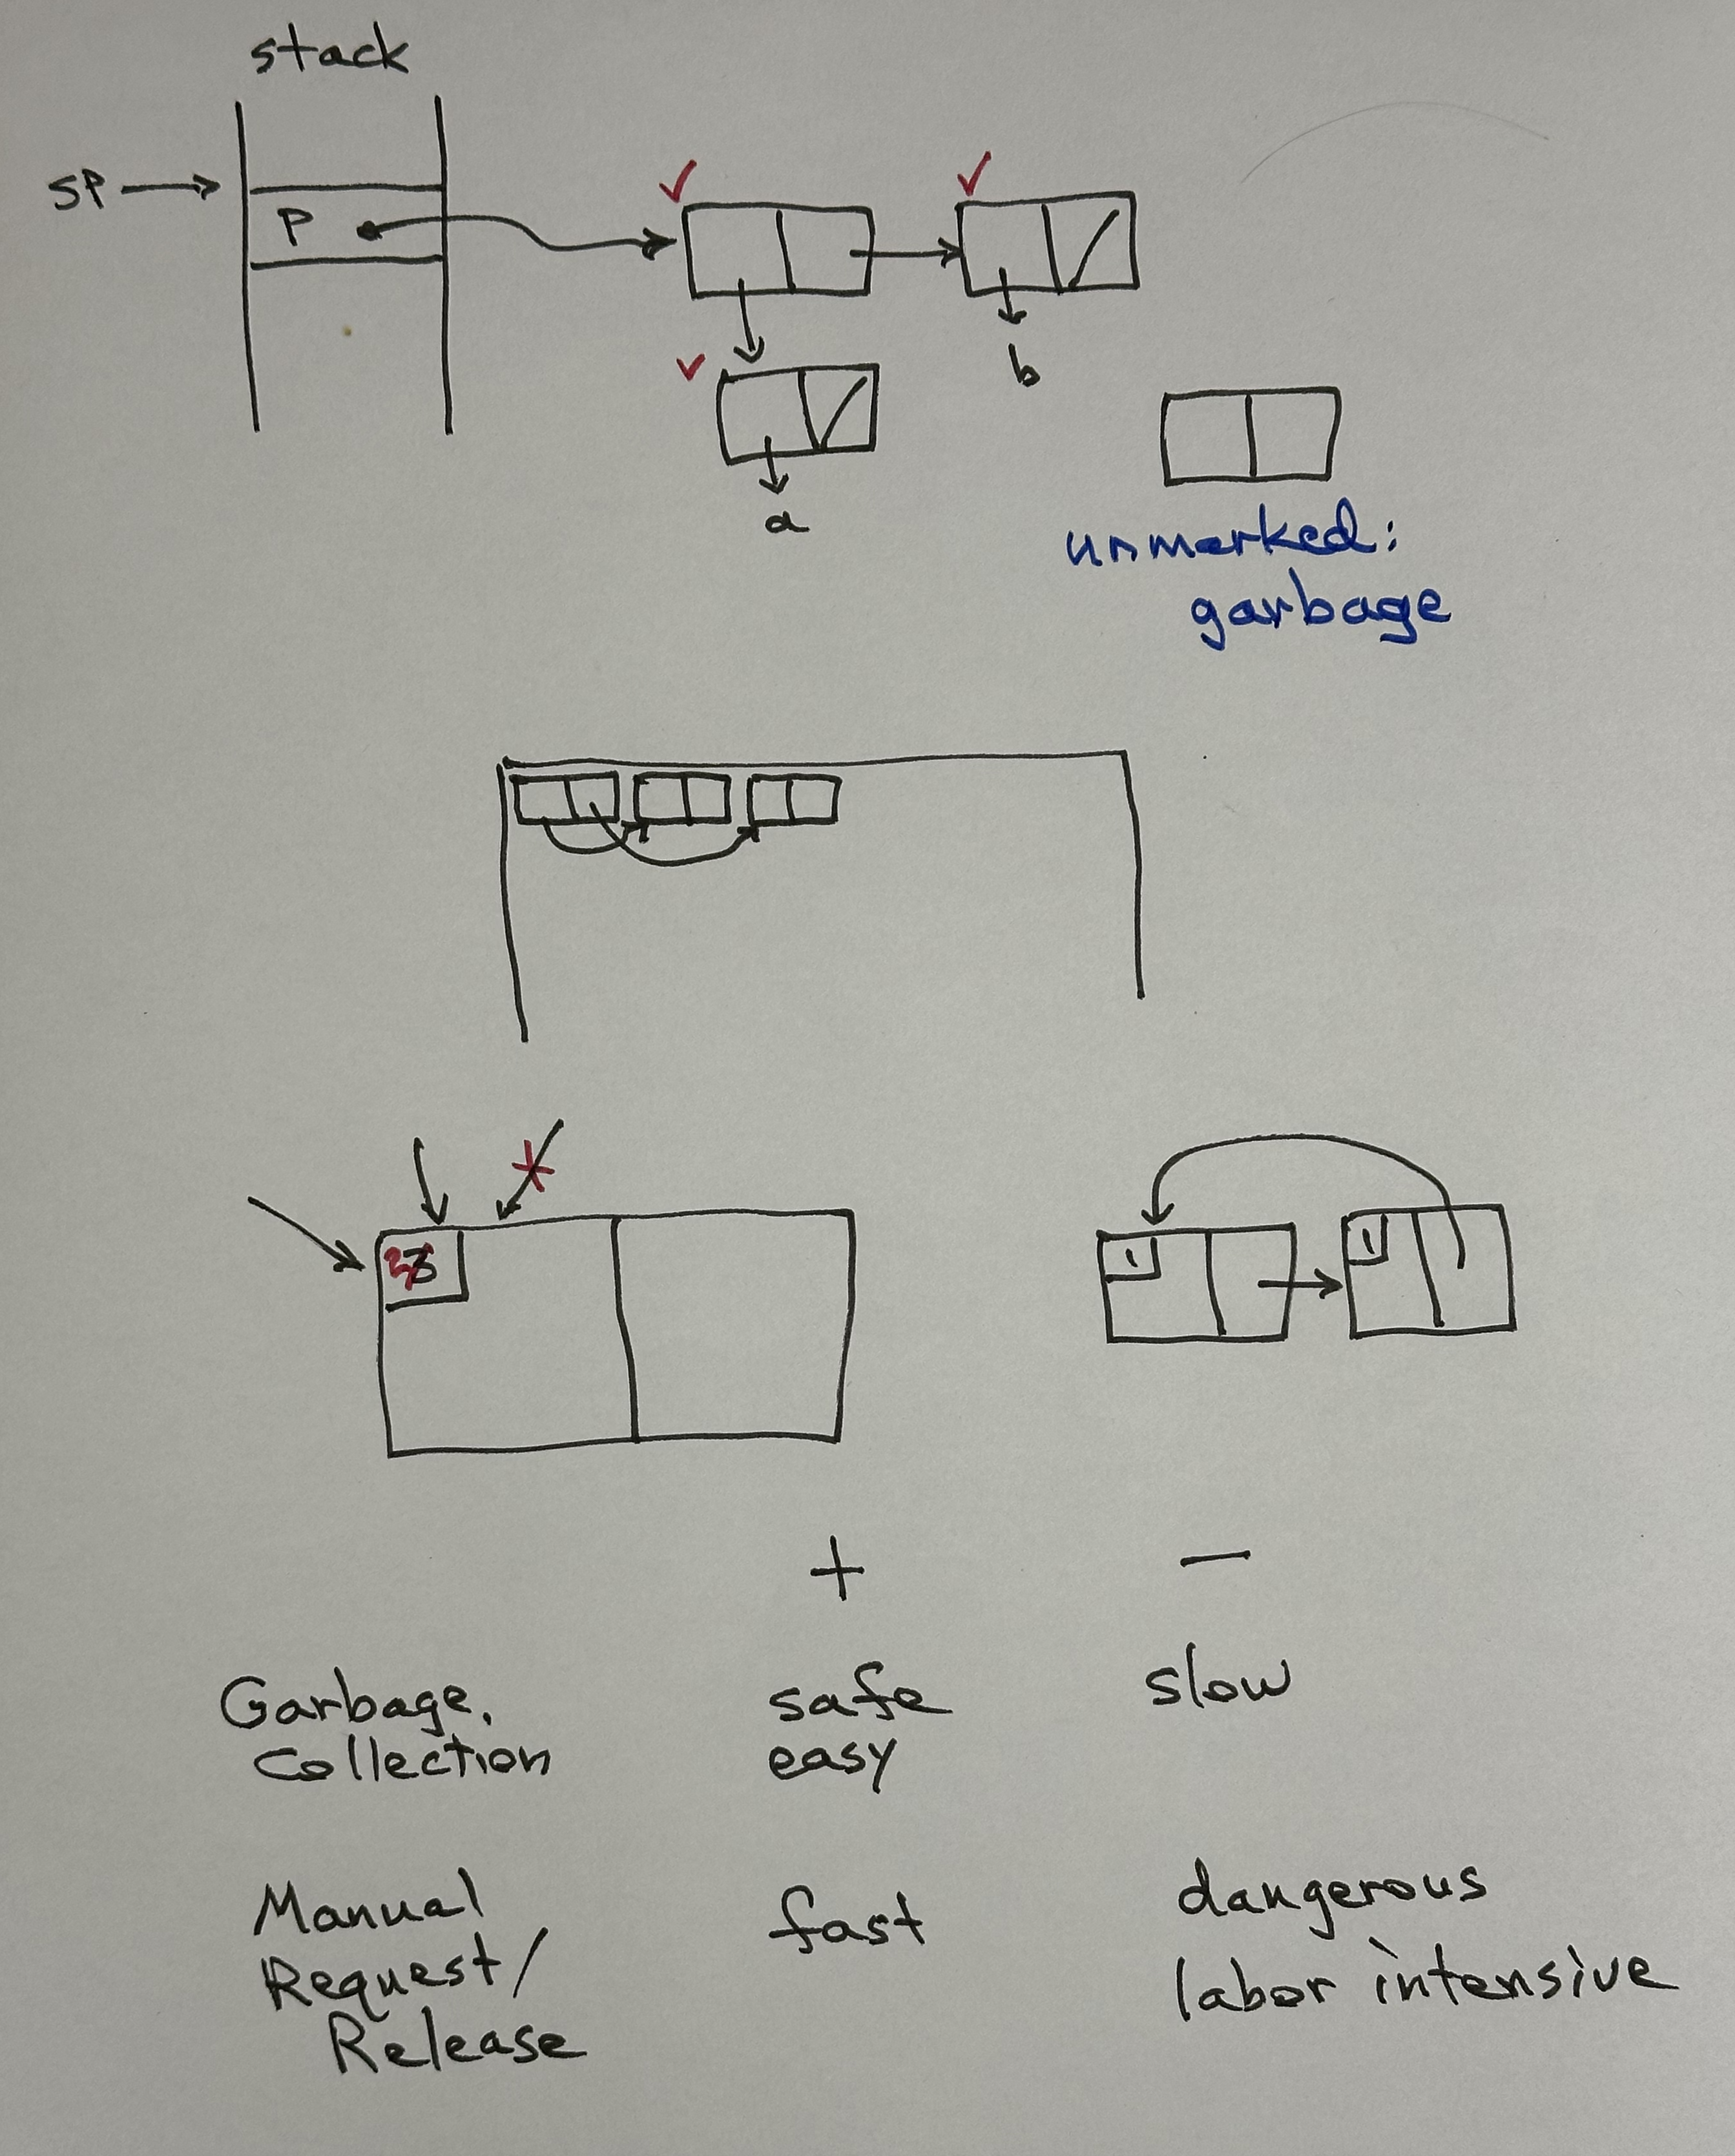 stack
SP
P
b
a
unmarked:
garbage
3
1
1
+
-
Garbage.
Collection
safe
easy
slow
Manual
Request/
Release
fast
dangerous
labor intensive